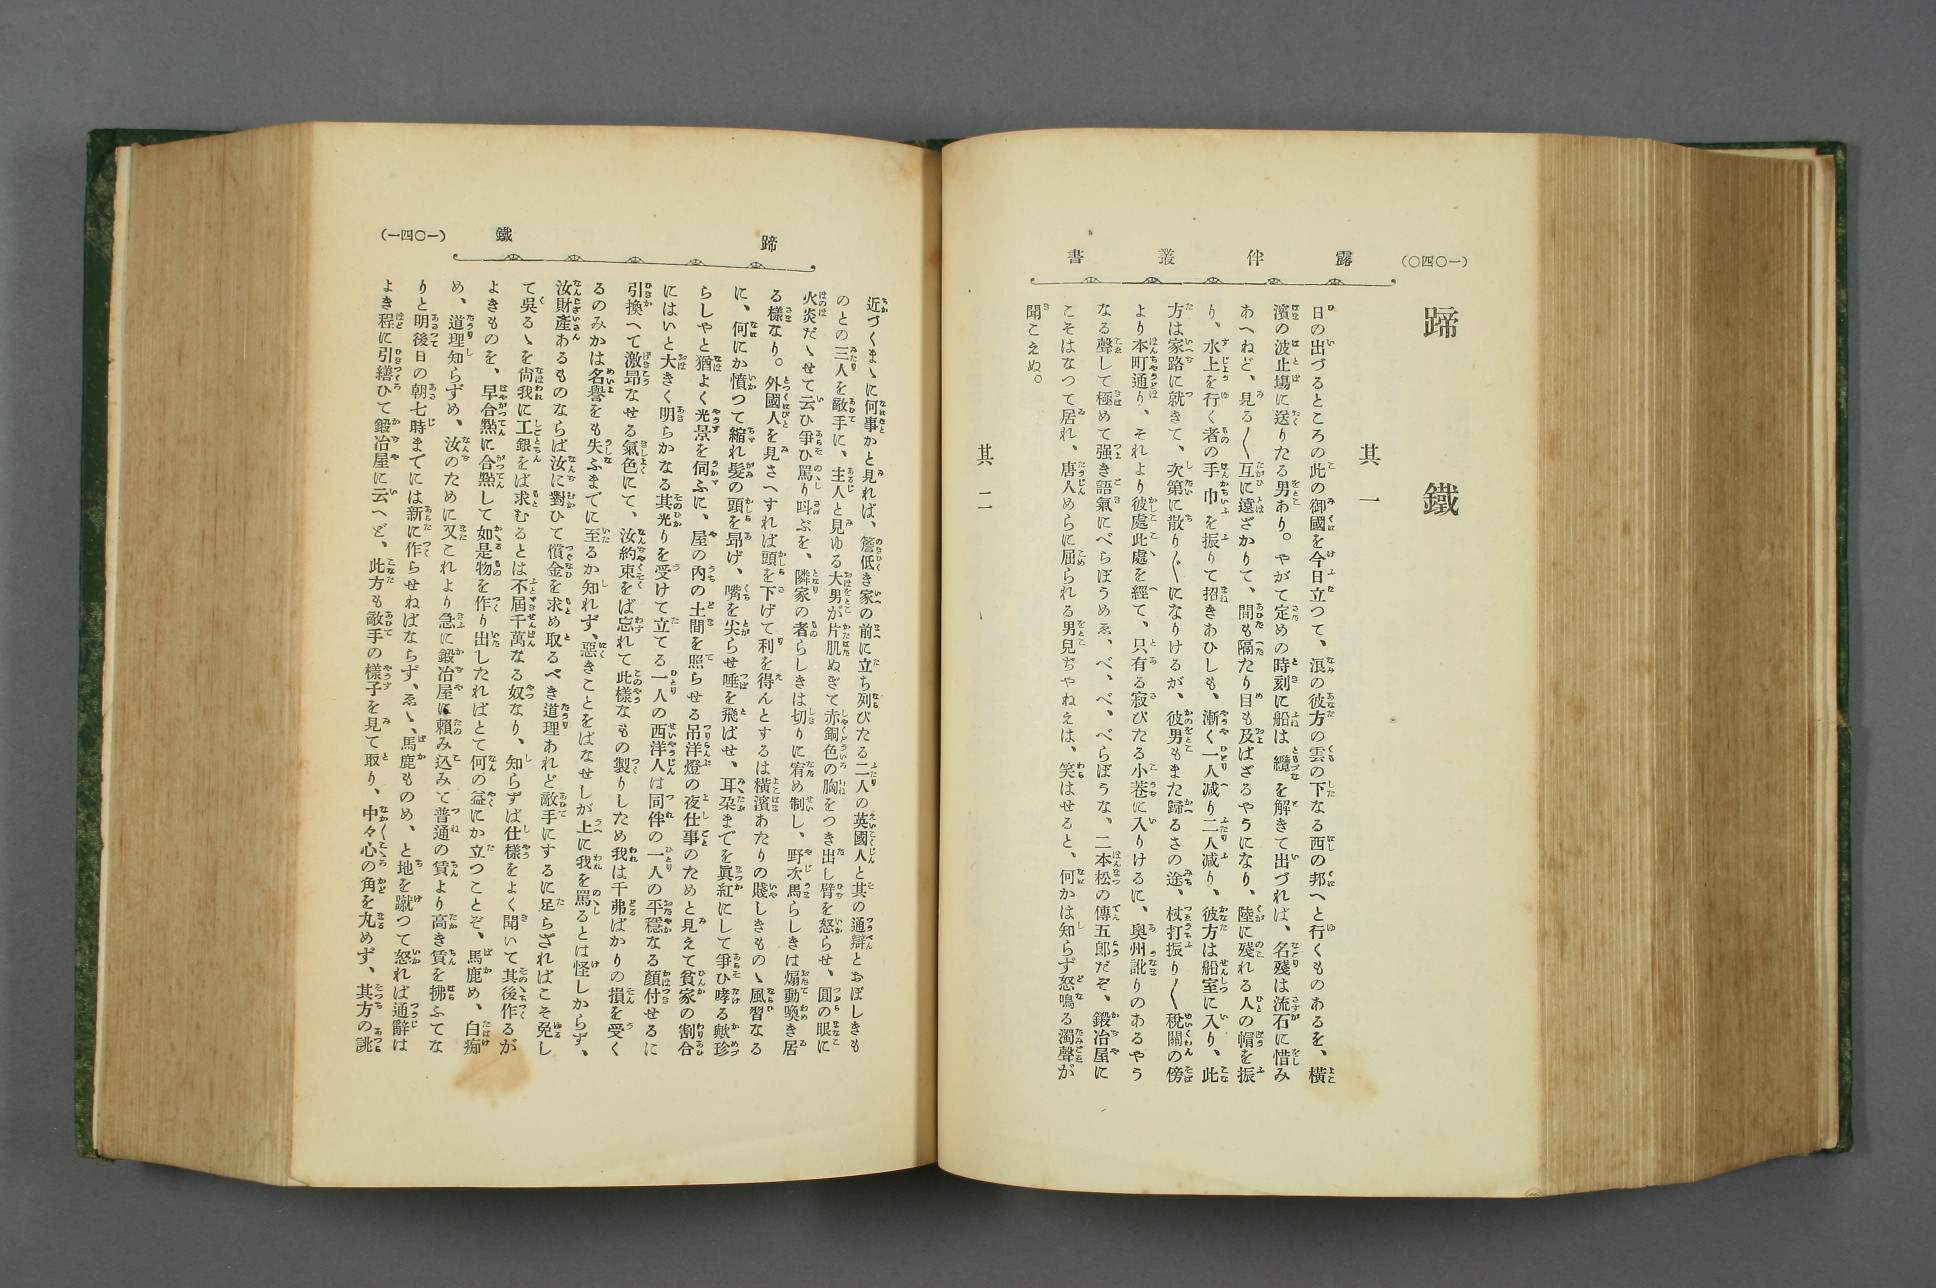 (一〇四〇)
露伴叢書
蹄鐵
其一
日の出づるところの此の御國を今日立つて、浪の彼方の雲の下なる西の邦へと行くものあるを、橫
濱の波止塲に送りたる男あり。やがて定めの時刻に船は纜を解きて出づれば、名殘は流石に惜み
あへねど、見る〱互に遠ざかりて、間も隔たり目も及ばざるやうになり、陸に殘れる人の帽を振
り、水上を行く者の手巾を振りて招きあひしも、漸く一人减り二人减り、彼方は船室に入り、此
方は家路に就きて、次第に散り〲になりけるが、彼男もまた歸るさの途、杖打振り〱稅關の傍
より本町通り、それより彼處此處を經て、只有る寂びたる小巷に入りけるに、奧州訛りのあるやう
なる聲して極めて强き語氣にべらぼうめゑ、べ、べ、べらぼうな、二本松の傳五郎だぞ、鍛冶屋に
こそはなつて居れ、唐人めらに屈られる男兒ぢやねえは、笑はせると、何かは知らず怒鳴る濁聲が
聞こえぬ。
其二
蹄鐵
(一〇四一)
近づくまゝに何事かと見れば、簷低き家の前に立ち列びたる二人の英國人と其の通辯とおぼしきも
のとの三人を敵手に、主人と見ゆる大男が片肌ぬぎて赤銅色の胸をつき出し臂を怒らせ、圓の眼に
火炎だゝせて云ひ爭ひ罵り叫ぶを、隣家の者らしきは切りに宥め制し、野次馬らしきは煽動喚き居
る樣なり。外國人を見さへすれば頭を下げて利を得んとするは橫濱あたりの賤しきものゝ風習なる
に、何にか憤つて縮れ髮の頭を昻げ、嘴を尖らせ唾を飛ばせ、耳朶までを眞紅にして爭ひ哮る歟珍
らしやと猶よく光景を伺ふに、屋の內の土間を照らせる吊洋燈の夜仕事のためと見えて貧家の割合
にはいと大きく明らかなる其光りを受けて立てる一人の西洋人は同伴の一人の平穩なる顏付せるに
引換へて激昻なせる氣色にて、汝約束をば忘れて此樣なもの製りしため我は千弗ばかりの損を受く
るのみかは名譽をも失ふまでに至るか知れず、惡きことをばなせしが上に我を罵るとは怪しからず、
汝財產あるものならば汝に對ひて償金を求め取るべき道理あれど敵手にするに足らざればこそ免し
て吳るゝを尙我に工銀をば求むるとは不屆千萬なる奴なり、知らずば仕樣をよく聞いて其後作るが
よきものを、早合點に合點して如是物を作り出したればとて何の益にか立つことぞ、馬鹿め、白痴
め、道理知らずめ、汝のために又これより急に鍛冶屋に賴み込みて普通の賃より高き賃を拂ふてな
りと明後日の朝七時までには新に作らせねばならず、ゑゝ、馬鹿ものめ、と地を蹴つて怒れば通辭は
よき程に引繕ひて鍛冶屋に云へど、此方も敵手の樣子を見て取り、中々心の角を丸めず、其方の誂